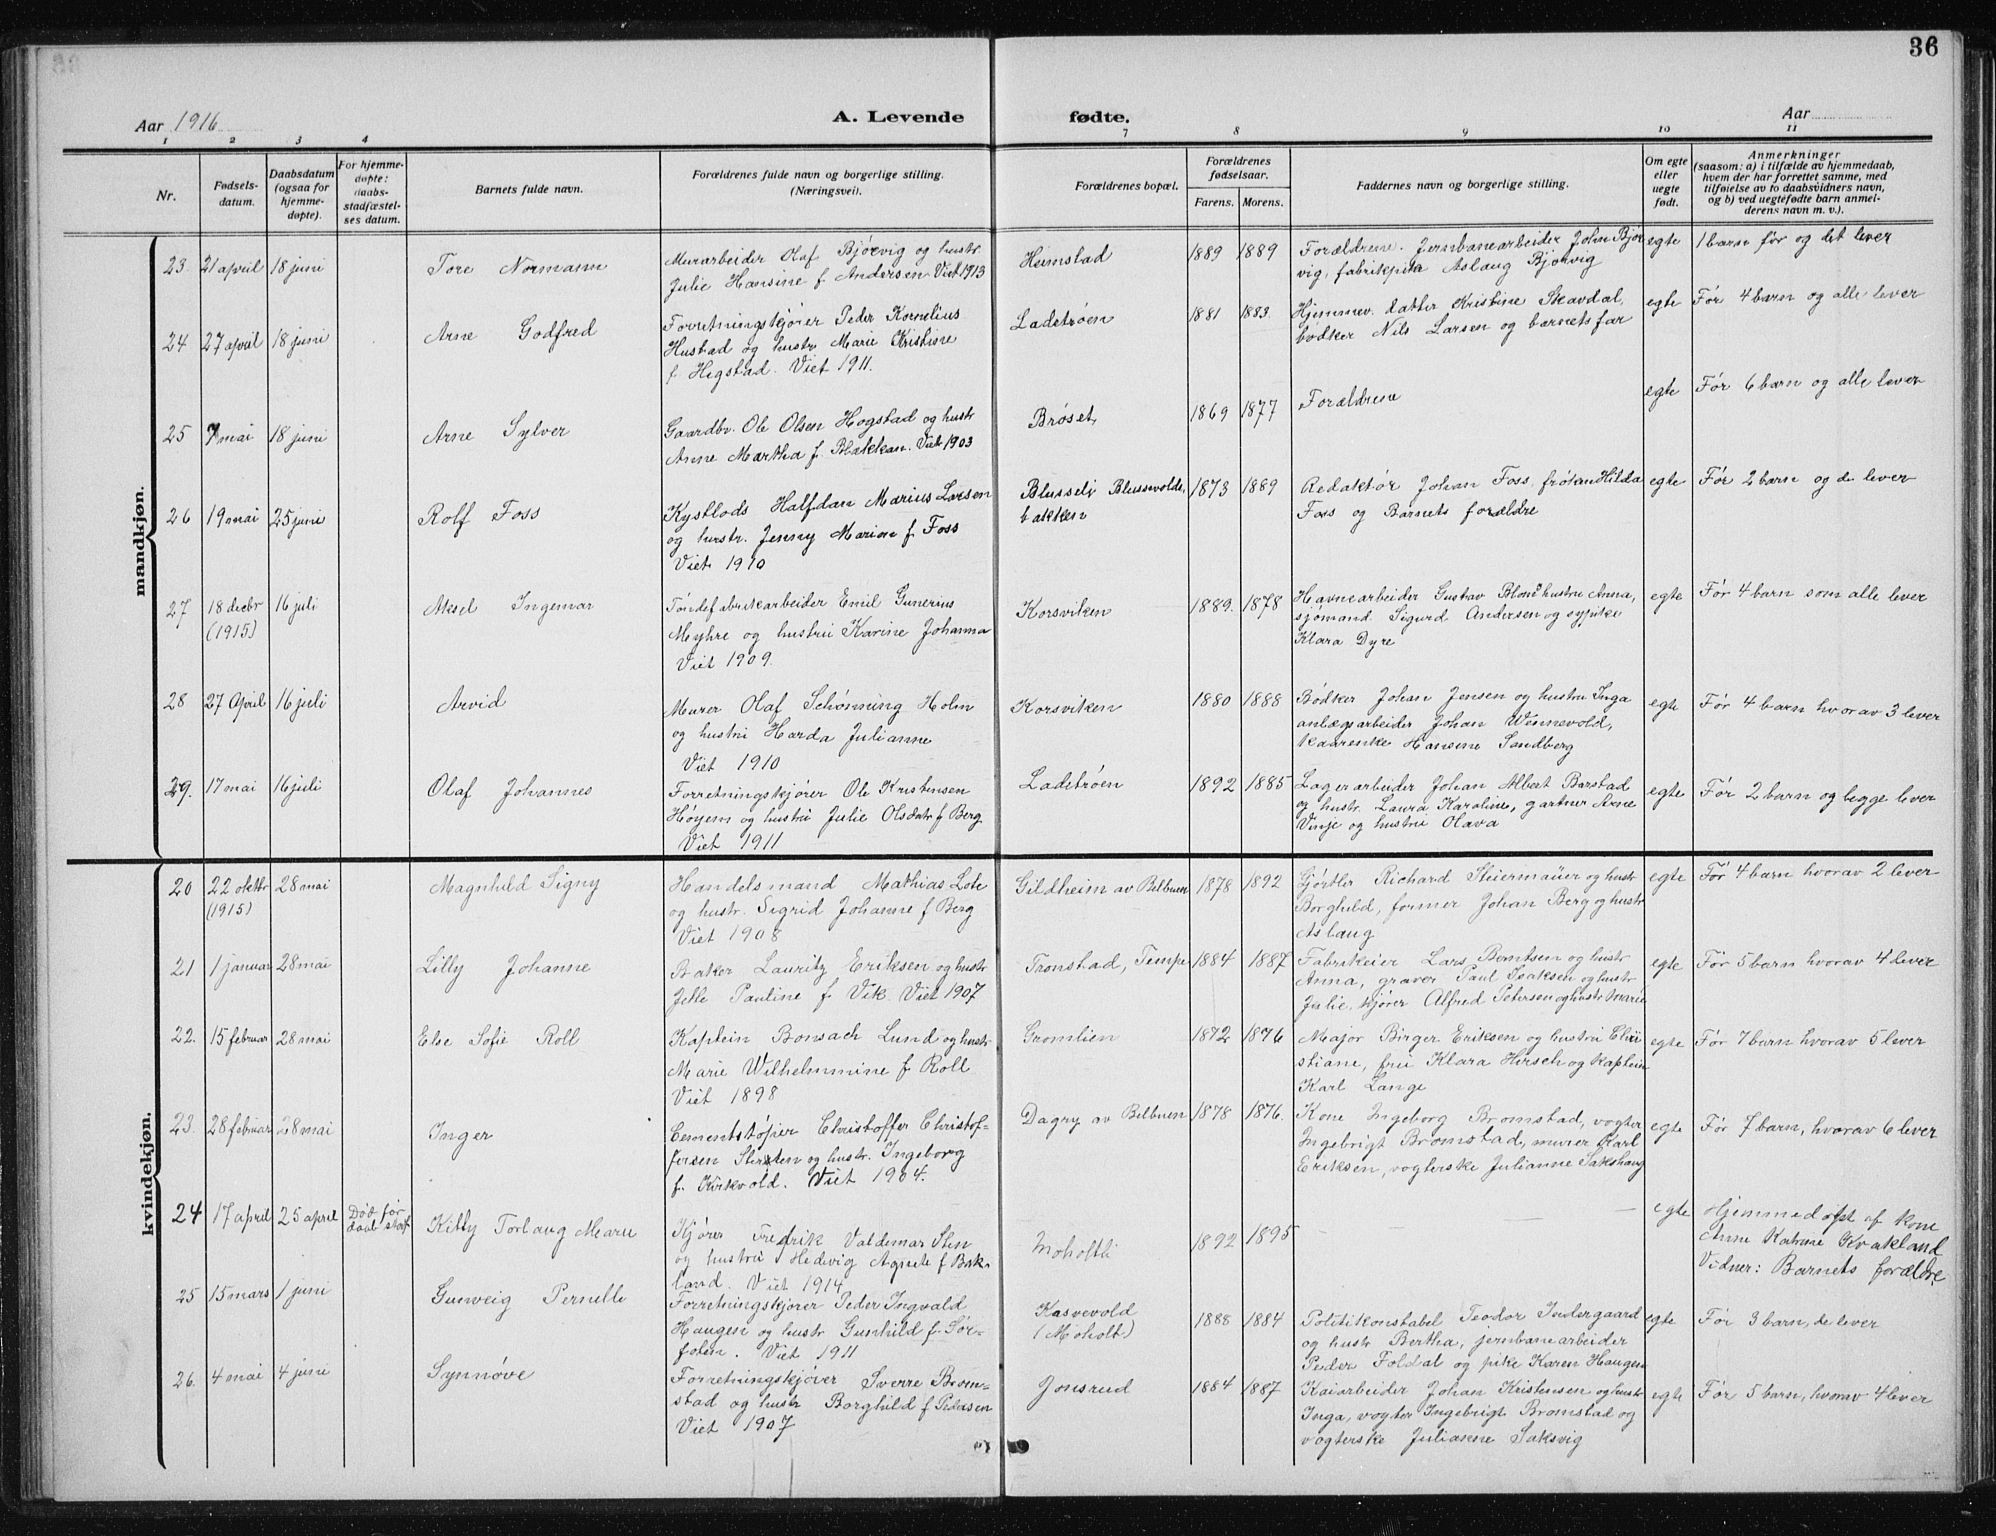 36
Aar 1916
A. Levende
fødte.
Aar
1 2 3 4 7 8 9 10 11
Nr.
Fødsels-
datum.
Daabsdatum
(ogsaa for
hjemme-
døpte).
For hjemme-
døpte:
daabs-
stadfæstel-
ses datum.
Barnets fulde navn.
Forældrenes fulde navn og borgerlige stilling.
(Næringsvei).
Forældrenes bopæl.
Forældrenes
fødselsaar.
Farens. Morens.
Faddernes navn og borgerlige stilling.
Om egte
eller
uegte
født.
Anmerkninger
(saasom: a) i tilfælde av hjemmedaab,
hvem der har forrettet samme, med
tilføielse av to daabsvidners navn,
og b) ved uegtefødte barn anmel-
derens navn m. v.).
mandkjøn.
23 21 april 18 juni
Tore Normann
Murarbeider Olaf Bjørvig og hustr
Julie Hansine f. Andersen. Viet 1913
Heimstad
1889 1889
Forældrene. Jernbanearbeider Johan Bjør
vig, fabrikpike Aslaug Bjørvig
egte
1 barn før og det lever
24 27 april 18 juni
Arne Godfred
Forretningskjører Peder Kornelius
Hustad og hustr Marie Kristine
f. Hegstad. Viet 1911.
Ladetrøen
1881 1883.
Hjemmev. datter Kristine Skavdal,
bødker Nils Larsen og barnets far
egte
Før 4 barn og alle lever
25 7 mai 18 juni
Arne Sylver
Gaardbr. Ole Olsen Hogstad og hustr
Anne Martha f. Blækkan. Viet 1903
Brøset,
1869 1877
Forældrene
egte
Før 6 barn og alle lever
26 19 mai 25 juni
Rolf Foss
Kystlods Halfdan Marius Larsen
og hustr. Jenny Marion f. Foss
Viet 1910
Blusselj Blussevolds,
bakken
1873 1889
Redaktør Johan Foss, frøken Hilda
Foss og Barnets forældre
egte
Før 2 barn og de lever
27 18 decbr 16 juli
(1915)
Aksel Ingemar
Tøndefabrikarbeider Emil Gunerius
Myhre og hustru Karine Johanna
Viet 1909.
Korsviken
1889. 1878
Havnearbeider Gustav Blone hustru Anna,
sjømand Sigurd Andersen og sypike
Klara Dyre
egte
Før 4 barn som alle lever
28 27 April 16 juli
Arvid
Murer Olaf Schønning Holm
og hustru Harda Julianne
Viet 1910
Korsviken
1880 1888
Bødker Johan Jensen og hustru Inga
anlægsarbeider Johan Wennevold,
Hansine Sandberg
egte
Før 4 barn hvorav 3 lever
29. 17 mai 16 juli
Olaf Johannes
Forretningskjører Ole Kristensen
Høyem og hustru Julie Olsdatr f Berg
Viet 1911
Ladetrøen
1892 1885
Lagerarbeider Johan Albert Barstad
og hustr. Laura Karoline, gartner Arne
Vinje og hustru Olava
egte
Før 2 barn og begge lever
kvindekjøn.
20 22 oktbr 28 mai
(1915)
Magnhild Signy
Handelsmand Mathias Lote
og hustr. Sigrid Johanne f Berg
Viet 1908
Gildheim av Belbuen
1878 1892
Gjørtler Richard Steiermaüer og hustr
Borghild, former Johan Berg og hustr
Aslaug
egte
Før 4 barn hvorav 2 lever
21 1 januar 28 mai
Lilly Johanne
Baker Lauritz Eriksen og hustr
Jelle Pauline f. Vik. Viet 1907
Tronstad, Tempe
1884 1887
Fabrikeier Lars Berntsen og hustr
Anna, graver Paul Isaksen og hustr
Julie, kjører Alfred Petersen og hustr Marie
egte
Før 5 barn hvorav 4 lever
22. 15 februar 28 mai
Else Sofie Roll
Kaptein Bonsach Lund og hustr
Marie Wilhelmmine f Roll
Viet 1898
Gromlien
1872 1876
Major Birger Eriksen og hustru Chri
stiane, frue Klara Hirsch og kaptein
Karl Lange
egte
Før 7 barn hvorav 5 lever
23. 28 februar 28 mai
Inger
Cementstøper Christoffer Christof-
fersen Stersten og hustr. Ingeborg
f. Kirkvold. Viet 1904.
Dagry av Belbuen
1878 1876.
Kone Ingeborg Bromstad, vogter
Ingebrigt Bromstad, murer Karl
Eriksen, vogterske Julianne Sakshaug
egte
Før 7 barn, hvorav 6 lever
24 17 april 25 april Død før
daab. staf
Kitty Torlaug Marie
Kjører Fredrik Valdemar Sten
og hustru Hedevig Agnete f Bak-
land. Viet 1914
Moholtli
1892 1895
— — — —
egte
Hjemmedøpt af kone
Anne Katrine Kvakland
Vidner: Barnets forældre
25 15 mars 1 juni
Gunveig Pernille
Forretningskjører Peder Ingvald
Haugen og hustr Gunhild f. Sør-
foten. Viet 1911
Kasvevold
(Moholt)
1888 1884
Politikonstabel Teodor Indergaard
og hustr Bertha, jernbanearbeider
Peder Foldal og pike Karen Haugen
egte
Før 3 barn, de lever
26. 4 mai 4 juni
Synnøve
Forretningskjører Sverre Brom-
stad og hustr Borghild f Pedersen
Viet 1907
Jonsrud
1884 1887
Kaiarbeider Johan Kristensen og hustr
Inga, vogter Ingebrigt Bromstad og
vogterske Julianne Saksvig
egte
Før 5 barn, hvorav 4 lever